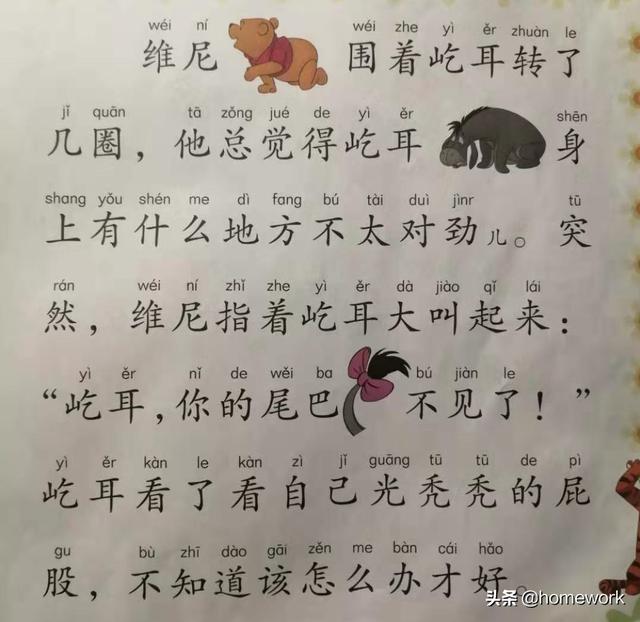 wéi ní wéi zhe yì ěr zhuàn le
维尼 围着屹耳转了
jǐ quān tā zǒng jué de yì ěr shēn
几圈，他总觉得屹耳 身
shang yǒu shén me dì fang bú tài duì jìnr tū
上有什么地方不太对劲儿。突
rán wéi ní zhǐ zhe yì ěr dà jiào qǐ lái
然，维尼指着屹耳大叫起来：
yì ěr nǐ de wěi ba bú jiàn le
“屹耳，你的尾巴 不见了！”
yì ěr kàn le kàn zì jǐ guāng tū tū de pì
屹耳看了看自己光秃秃的屁
gu bù zhī dào gāi zěn me bàn cái hǎo
股，不知道该怎么办才好。
头条 @homework